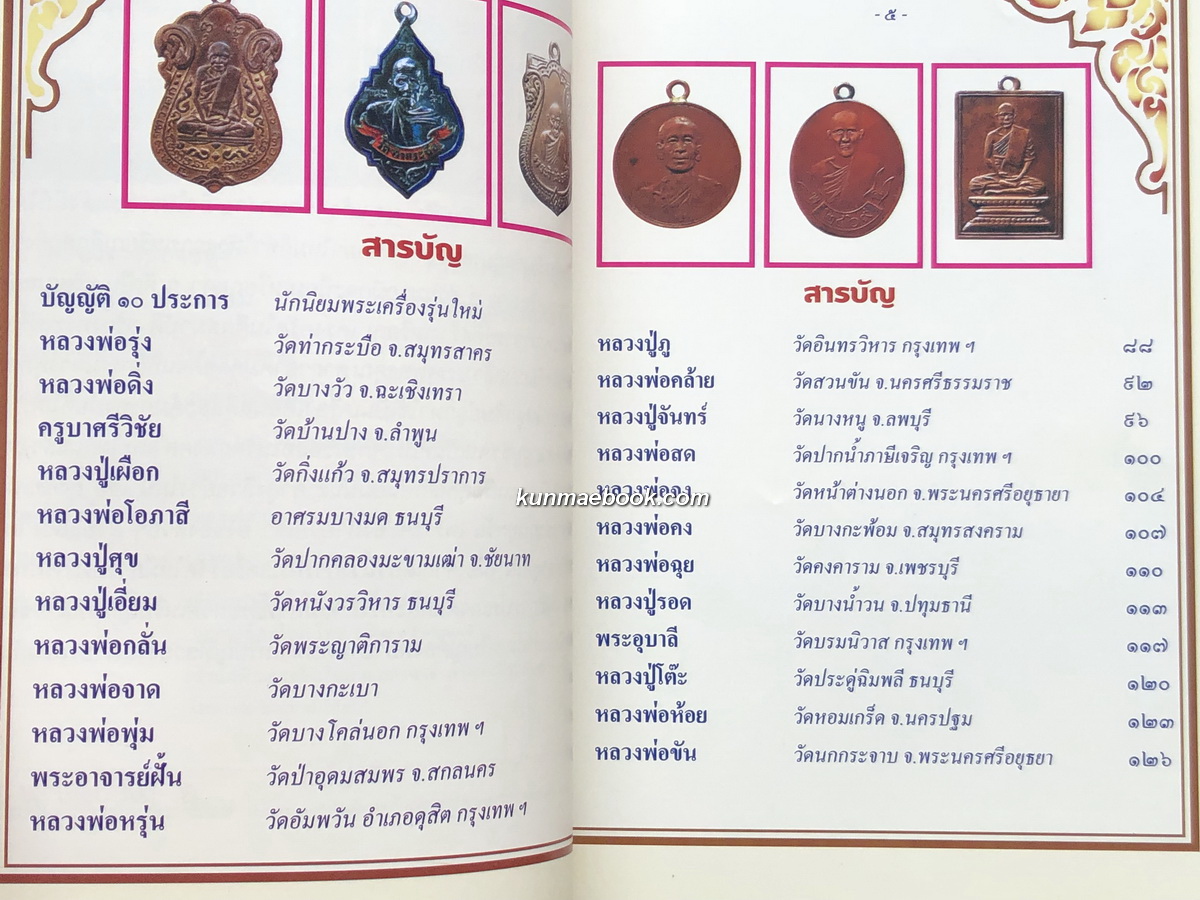 สารบัญ
บัญญัติ ๑๐ ประการ นักนิยมพระเครื่องรุ่นใหม่
หลวงพ่อรุ่ง วัดท่ากระบือ จ.สมุทรสาคร
หลวงพ่อดิ่ง วัดบางวัว จ.ฉะเชิงเทรา
ครูบาศรีวิชัย วัดบ้านปาง จ.ลำพูน
หลวงปู่เผือก วัดกิ่งแก้ว จ.สมุทรปราการ
หลวงพ่อโอภาสี อาศรมบางมด ธนบุรี
หลวงปู่ศุข วัดปากคลองมะขามเฒ่า จ.ชัยนาท
หลวงปู่เอี่ยม วัดหนังวรวิหาร ธนบุรี
หลวงพ่อกลั่น วัดพระญาติการาม
หลวงพ่อจาด วัดบางกะเบา
หลวงพ่อพุ่ม วัดบางโคล่นอก กรุงเทพ ฯ
พระอาจารย์ฝั้น วัดป่าอุดมสมพร จ.สกลนคร
หลวงพ่อหรุ่น วัดอัมพวัน อำเภอดุสิต กรุงเทพ ฯ
- ๕ -
สารบัญ
หลวงปู่ภู วัดอินทรวิหาร กรุงเทพ ฯ ๘๘
หลวงพ่อคล้าย วัดสวนขัน จ.นครศรีธรรมราช ๙๒
หลวงปู่จันทร์ วัดนางหนู จ.ลพบุรี ๙๖
หลวงพ่อสด วัดปากน้ำภาษีเจริญ กรุงเทพ ฯ ๑๐๐
หลวงพ่อจง วัดหน้าต่างนอก จ.พระนครศรีอยุธายา ๑๐๔
kunmaebook.com
หลวงพ่อคง วัดบางกะพ้อม จ.สมุทรสงคราม ๑๐๗
หลวงพ่อฉุย วัดคงคาราม จ.เพชรบุรี ๑๑๐
หลวงปู่รอด วัดบางน้ำวน จ.ปทุมธานี ๑๑๓
พระอุบาลี วัดบรมนิวาส กรุงเทพ ฯ ๑๑๗
หลวงปู่โต๊ะ วัดประดู่ฉิมพลี ธนบุรี ๑๒๐
หลวงพ่อห้อย วัดหอมเกร็ด จ.นครปฐม ๑๒๓
หลวงพ่อขัน วัดนกกระจาบ จ.พระนครศรีอยุธยา ๑๒๖